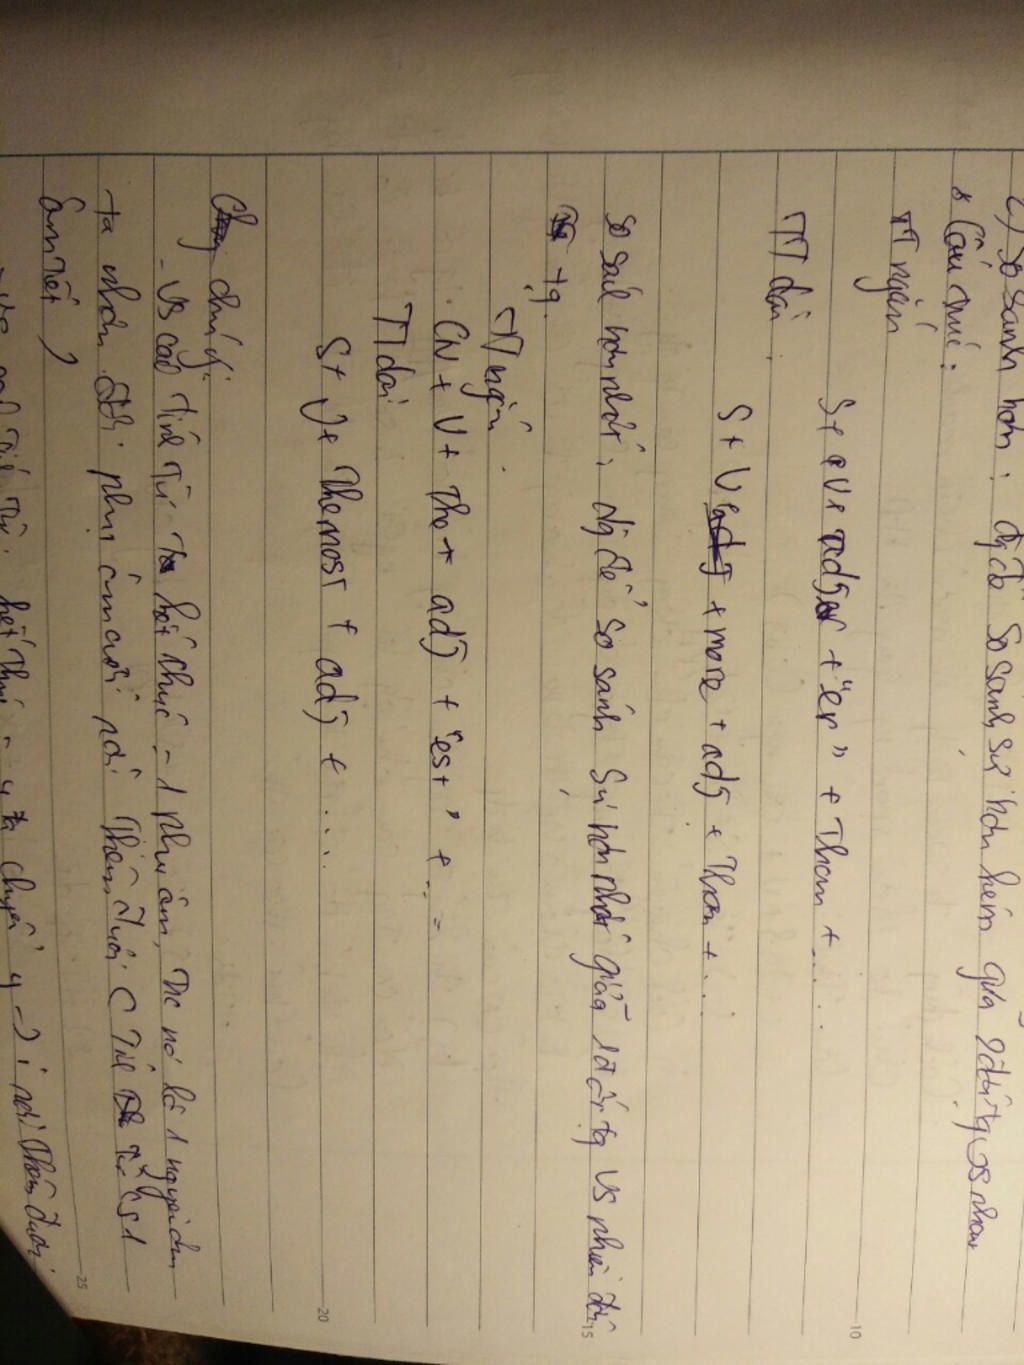 2) So sánh hơn: dg để so sánh sự hơn kém giữa 2 đối tg vs nhau
* Cấu trúc:
TT ngắn
S + V + adj + "er" + Than + ....
TT dài
S + V + more + adj + Than + ...
So sánh hơn nhất: dg để so sánh sự hơn nhất giữa 1 đối tg vs nhiều đối
tg.
TT ngắn
CN + V + The + adj + "est" + ...
TT dài
S + V + The most + adj + ....
chú ý:
- vs các tính từ kết thúc - 1 phụ âm, trc nó là 1 nguyên âm
ta nhân đôi phụ âm cuối rồi thêm đuôi (Tính từ có 1
âm tiết)
kết thúc - y ta chuyển y -> i rồi thêm đuôi
10
15
20
25